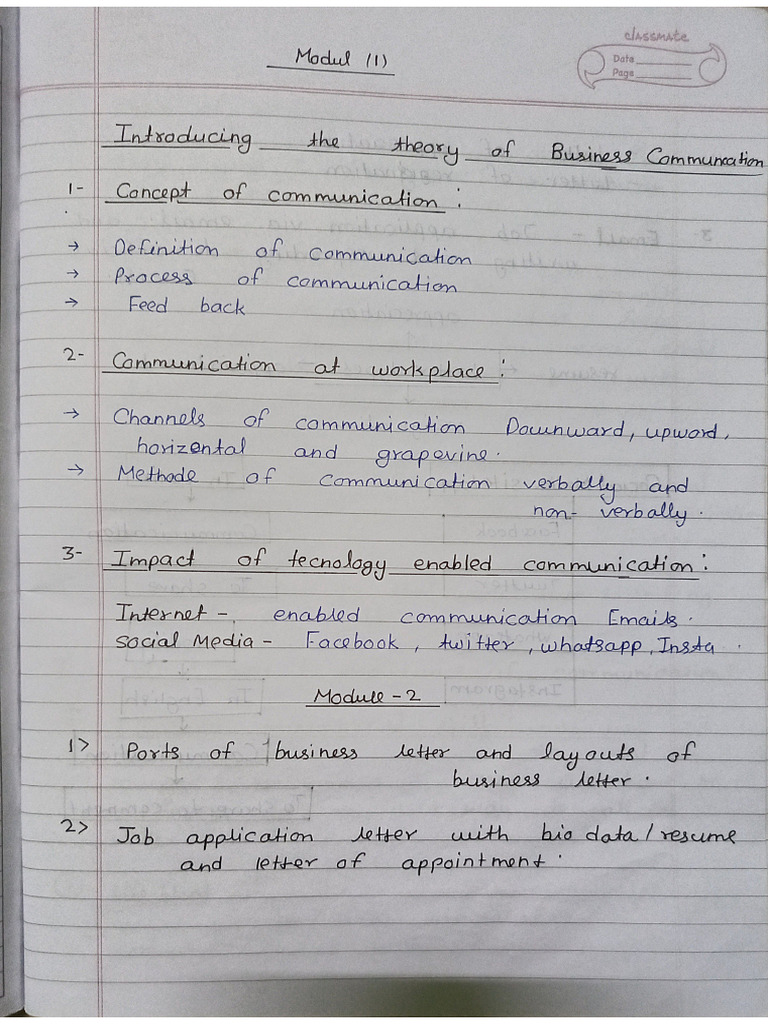 classmate
Date
Page
Modul (1)
Introducing the theory of Business Communcation
1- Concept of communication :
→ Definition of communication
→ Process of communication
→ Feed back
2- Communication at workplace :
→ Channels of communication Downward, upword,
horizental and grapevine.
→ Methode of communication verbally and
non- verbally.
3- Impact of tecnology enabled communication :
Internet - enabled communication Emails.
Social Media - Facebook, twitter, whatsapp, Insta.
Module - 2
1> Ports of business letter and layouts of
business letter.
2> Job application letter with bio data/resume
and letter of appointment.